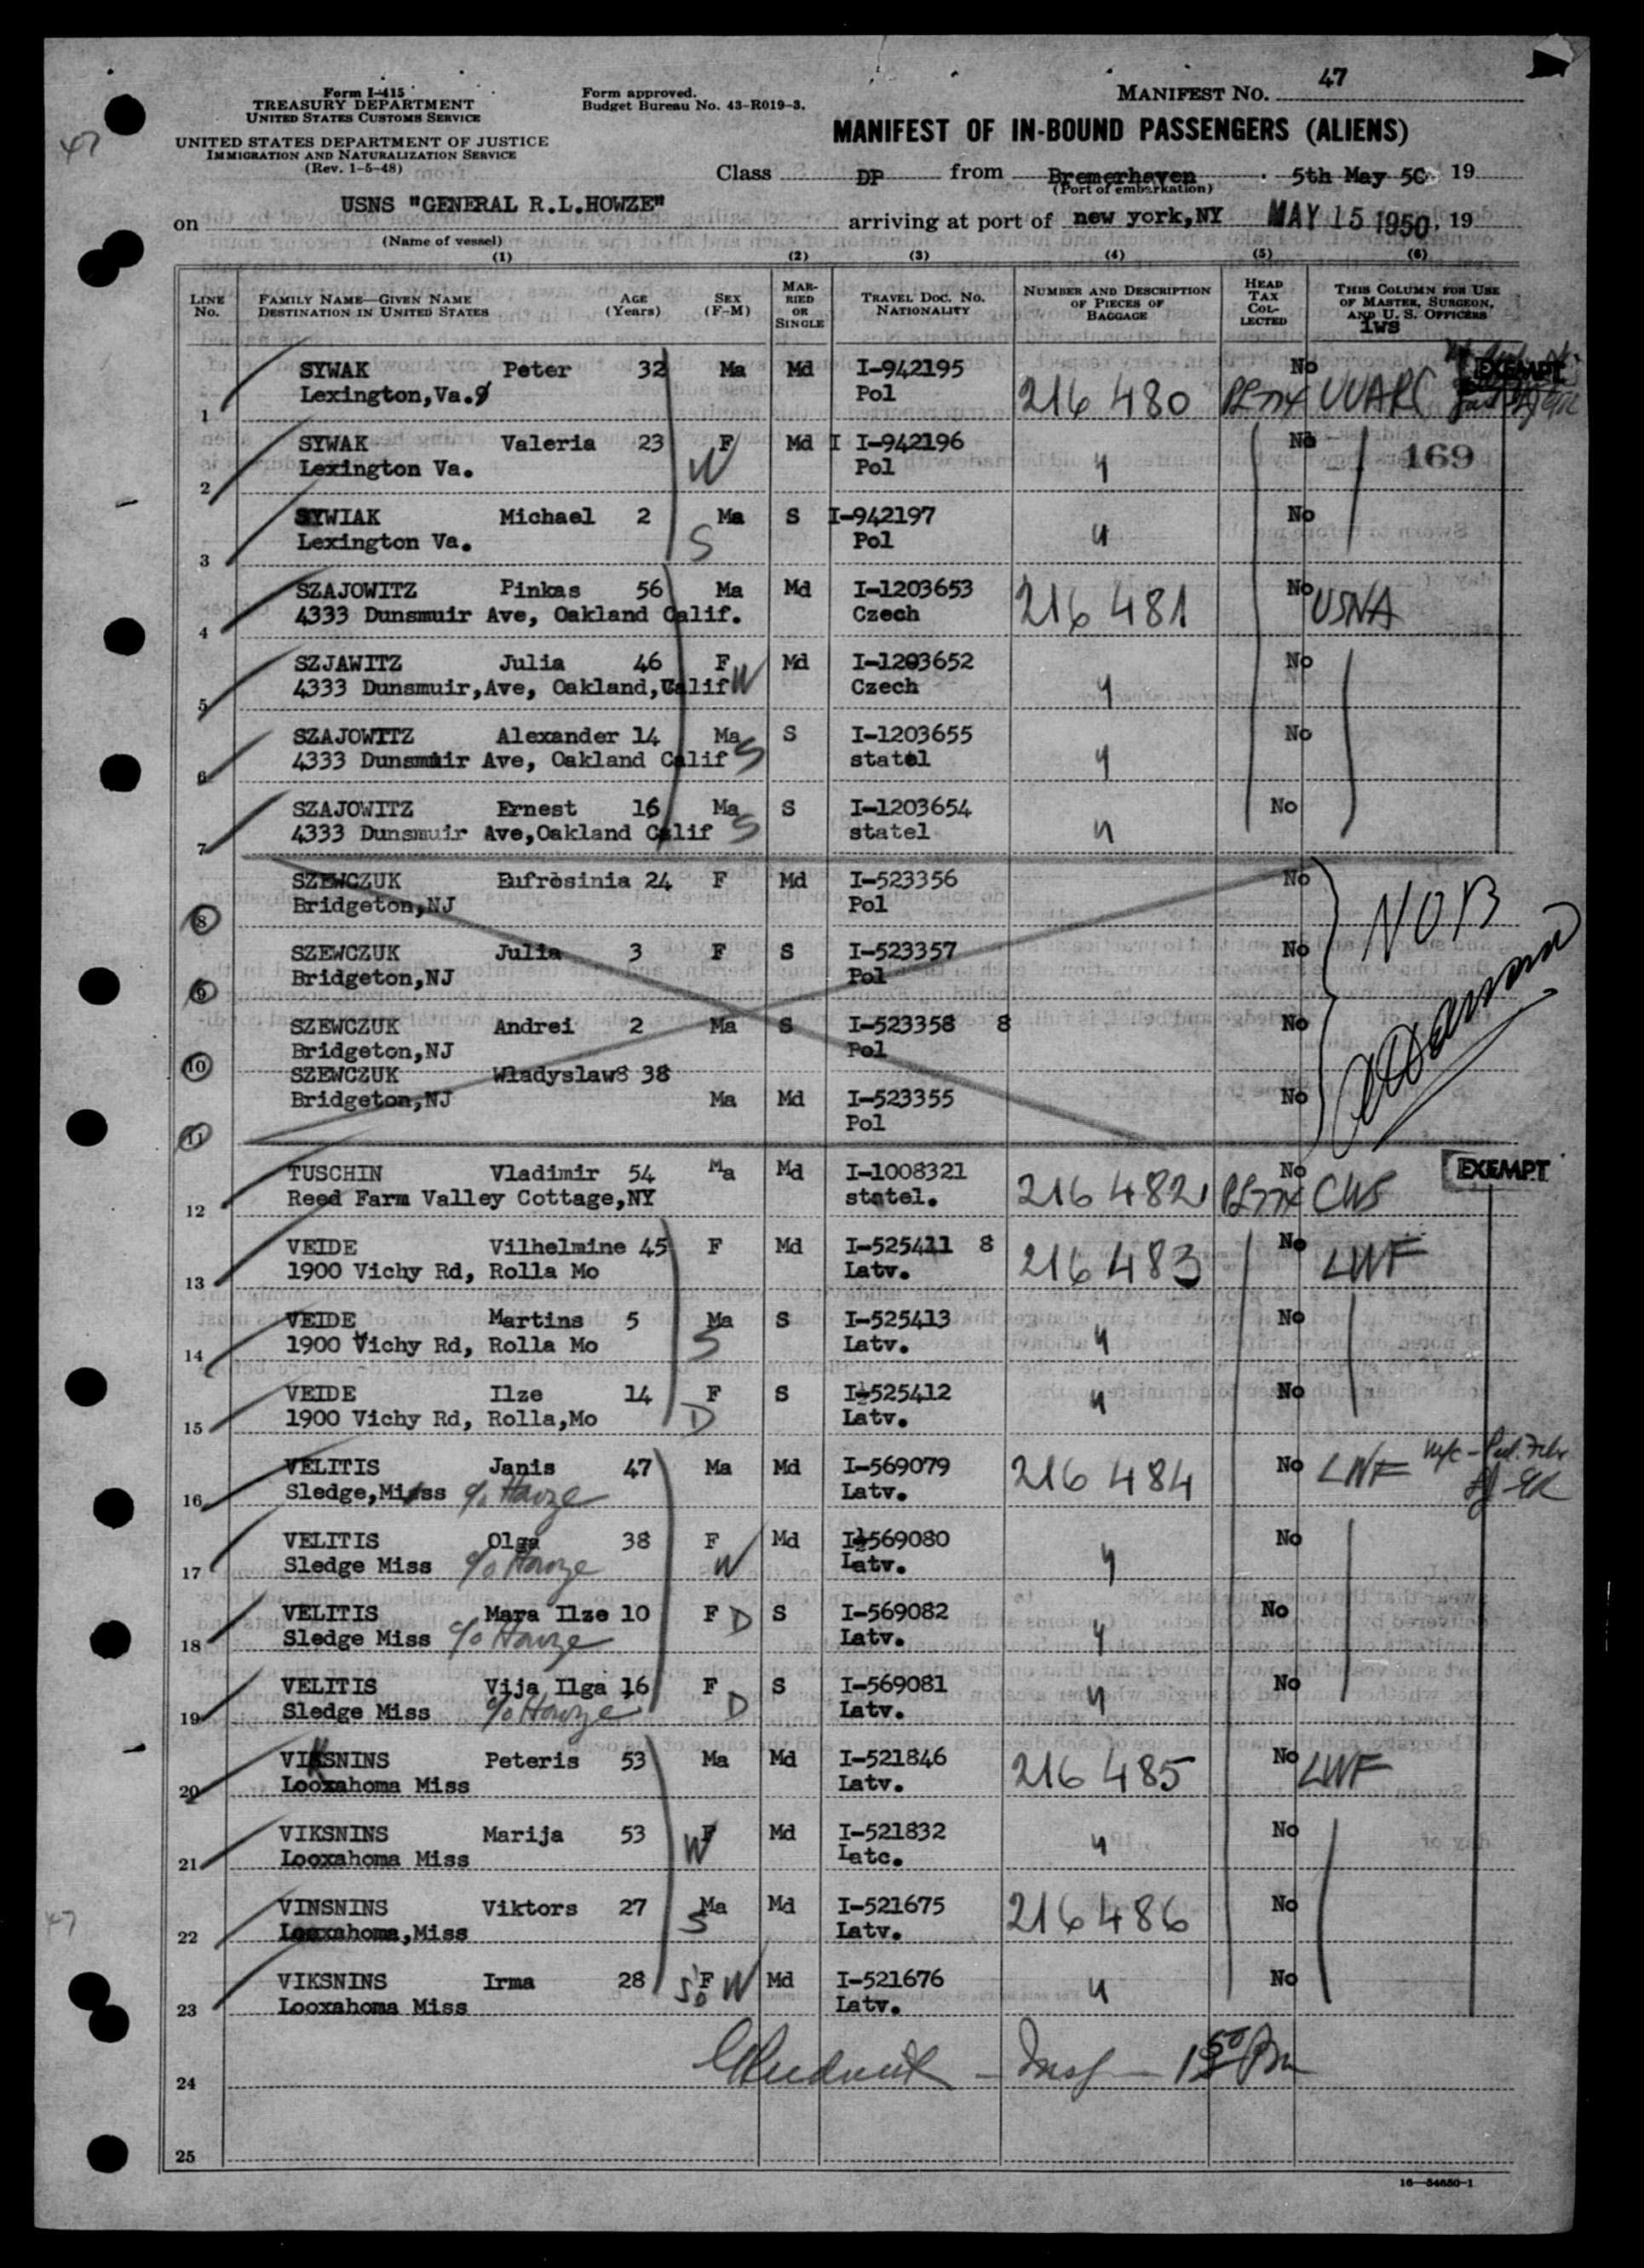 Form I-415
TREASURY DEPARTMENT
UNITED STATES CUSTOMS SERVICE
UNITED STATES DEPARTMENT OF JUSTICE
IMMIGRATION AND NATURALIZATION SERVICE
(Rev. 1-5-48)
Form approved.
Budget Bureau No. 43-R019-3.
MANIFEST NO. 47
47
MANIFEST OF IN-BOUND PASSENGERS (ALIENS)
Class DP from Bremerhaven 5th May 50 19
(Port of embarkation)
on USNS "GENERAL R.L.HOWZE" arriving at port of new york,NY MAY 15 1950, 19
(Name of vessel)
(1) (2) (3) (4) (5) (6)
LINE No. FAMILY NAME—GIVEN NAME DESTINATION IN UNITED STATES AGE (Years) SEX (F-M) MARRIED OR SINGLE TRAVEL DOC. NO. NATIONALITY NUMBER AND DESCRIPTION OF PIECES OF BAGGAGE HEAD TAX COLLECTED THIS COLUMN FOR USE OF MASTER, SURGEON, AND U. S. OFFICERS
iws
SYWAK Peter 32 Ma Md I-942195 No EXEMPT
1 Lexington,Va. Pol 216 480
SYWAK Valeria 23 F Md I I-942196 No 169
2 Lexington Va. W Pol "
SYWIAK Michael 2 Ma S I-942197 No
3 Lexington Va. S Pol "
SZAJOWITZ Pinkas 56 Ma Md I-1203653 No
4 4333 Dunsmuir Ave, Oakland Calif. Czech 216 481 USNA
SZJAWITZ Julia 46 F Md I-1203652 No
5 4333 Dunsmuir,Ave, Oakland,Calif W Czech "
SZAJOWITZ Alexander 14 Ma S I-1203655 No
6 4333 Dunsmuir Ave, Oakland Calif S statel "
SZAJOWITZ Ernest 16 Ma S I-1203654 No
7 4333 Dunsmuir Ave,Oakland Calif S statel "
SZEWCZUK Eufrosinia 24 F Md I-523356 No
8 Bridgeton,NJ Pol NOB
SZEWCZUK Julia 3 F S I-523357 No
9 Bridgeton,NJ Pol
SZEWCZUK Andrei 2 Ma S I-523358 8 No
10 Bridgeton,NJ Pol
SZEWCZUK Wladyslaw8 38
Bridgeton,NJ Ma Md I-523355 No
11 Pol
TUSCHIN Vladimir 54 Ma Md I-1008321 No EXEMPT
12 Reed Farm Valley Cottage,NY statel. 216 482 CWS
VEIDE Vilhelmine 45 F Md I-525411 8 No
13 1900 Vichy Rd, Rolla Mo Latv. 216 483 LWF
VEIDE Martins 5 Ma S I-525413 No
14 1900 Vichy Rd, Rolla Mo S Latv. "
VEIDE Ilze 14 F S I-525412 No
15 1900 Vichy Rd, Rolla,Mo D Latv. "
VELITIS Janis 47 Ma Md I-569079 No
16 Sledge,Miss c/o Howze Latv. 216 484 LWF
VELITIS Olga 38 F Md I-569080 No
17 Sledge Miss c/o Howze W Latv. "
VELITIS Mara Ilze 10 F D S I-569082 No
18 Sledge Miss c/o Howze Latv. "
VELITIS Vija Ilga 16 F S I-569081 No
19 Sledge Miss c/o Howze D Latv. "
VIKSNINS Peteris 53 Ma Md I-521846 No
20 Looxahoma Miss Latv. 216 485 LWF
VIKSNINS Marija 53 F Md I-521832 No
21 Looxahoma Miss W Latc. "
VINSNINS Viktors 27 Ma Md I-521675 No
22 Looxahoma,Miss S Latv. 216 486
VIKSNINS Irma 28 F W Md I-521676 No
23 Looxahoma Miss Latv. "
24
25
16—54650-1